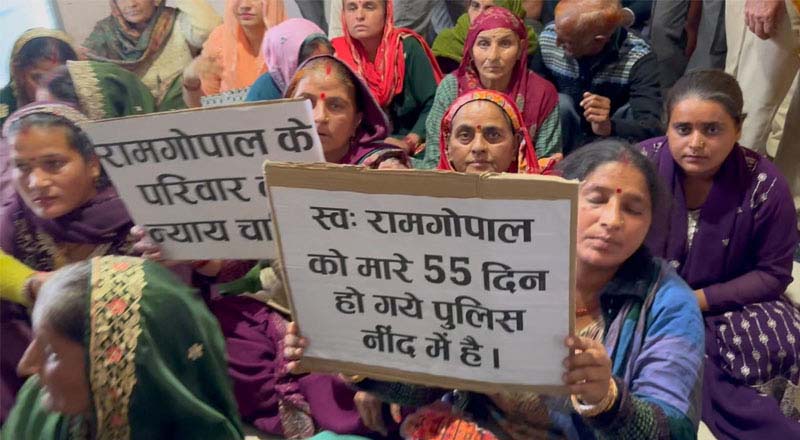 रामगोपाल के
परिवार
न्याय
स्वः रामगोपाल
को मारे 55 दिन
हो गये पुलिस
नींद में है।